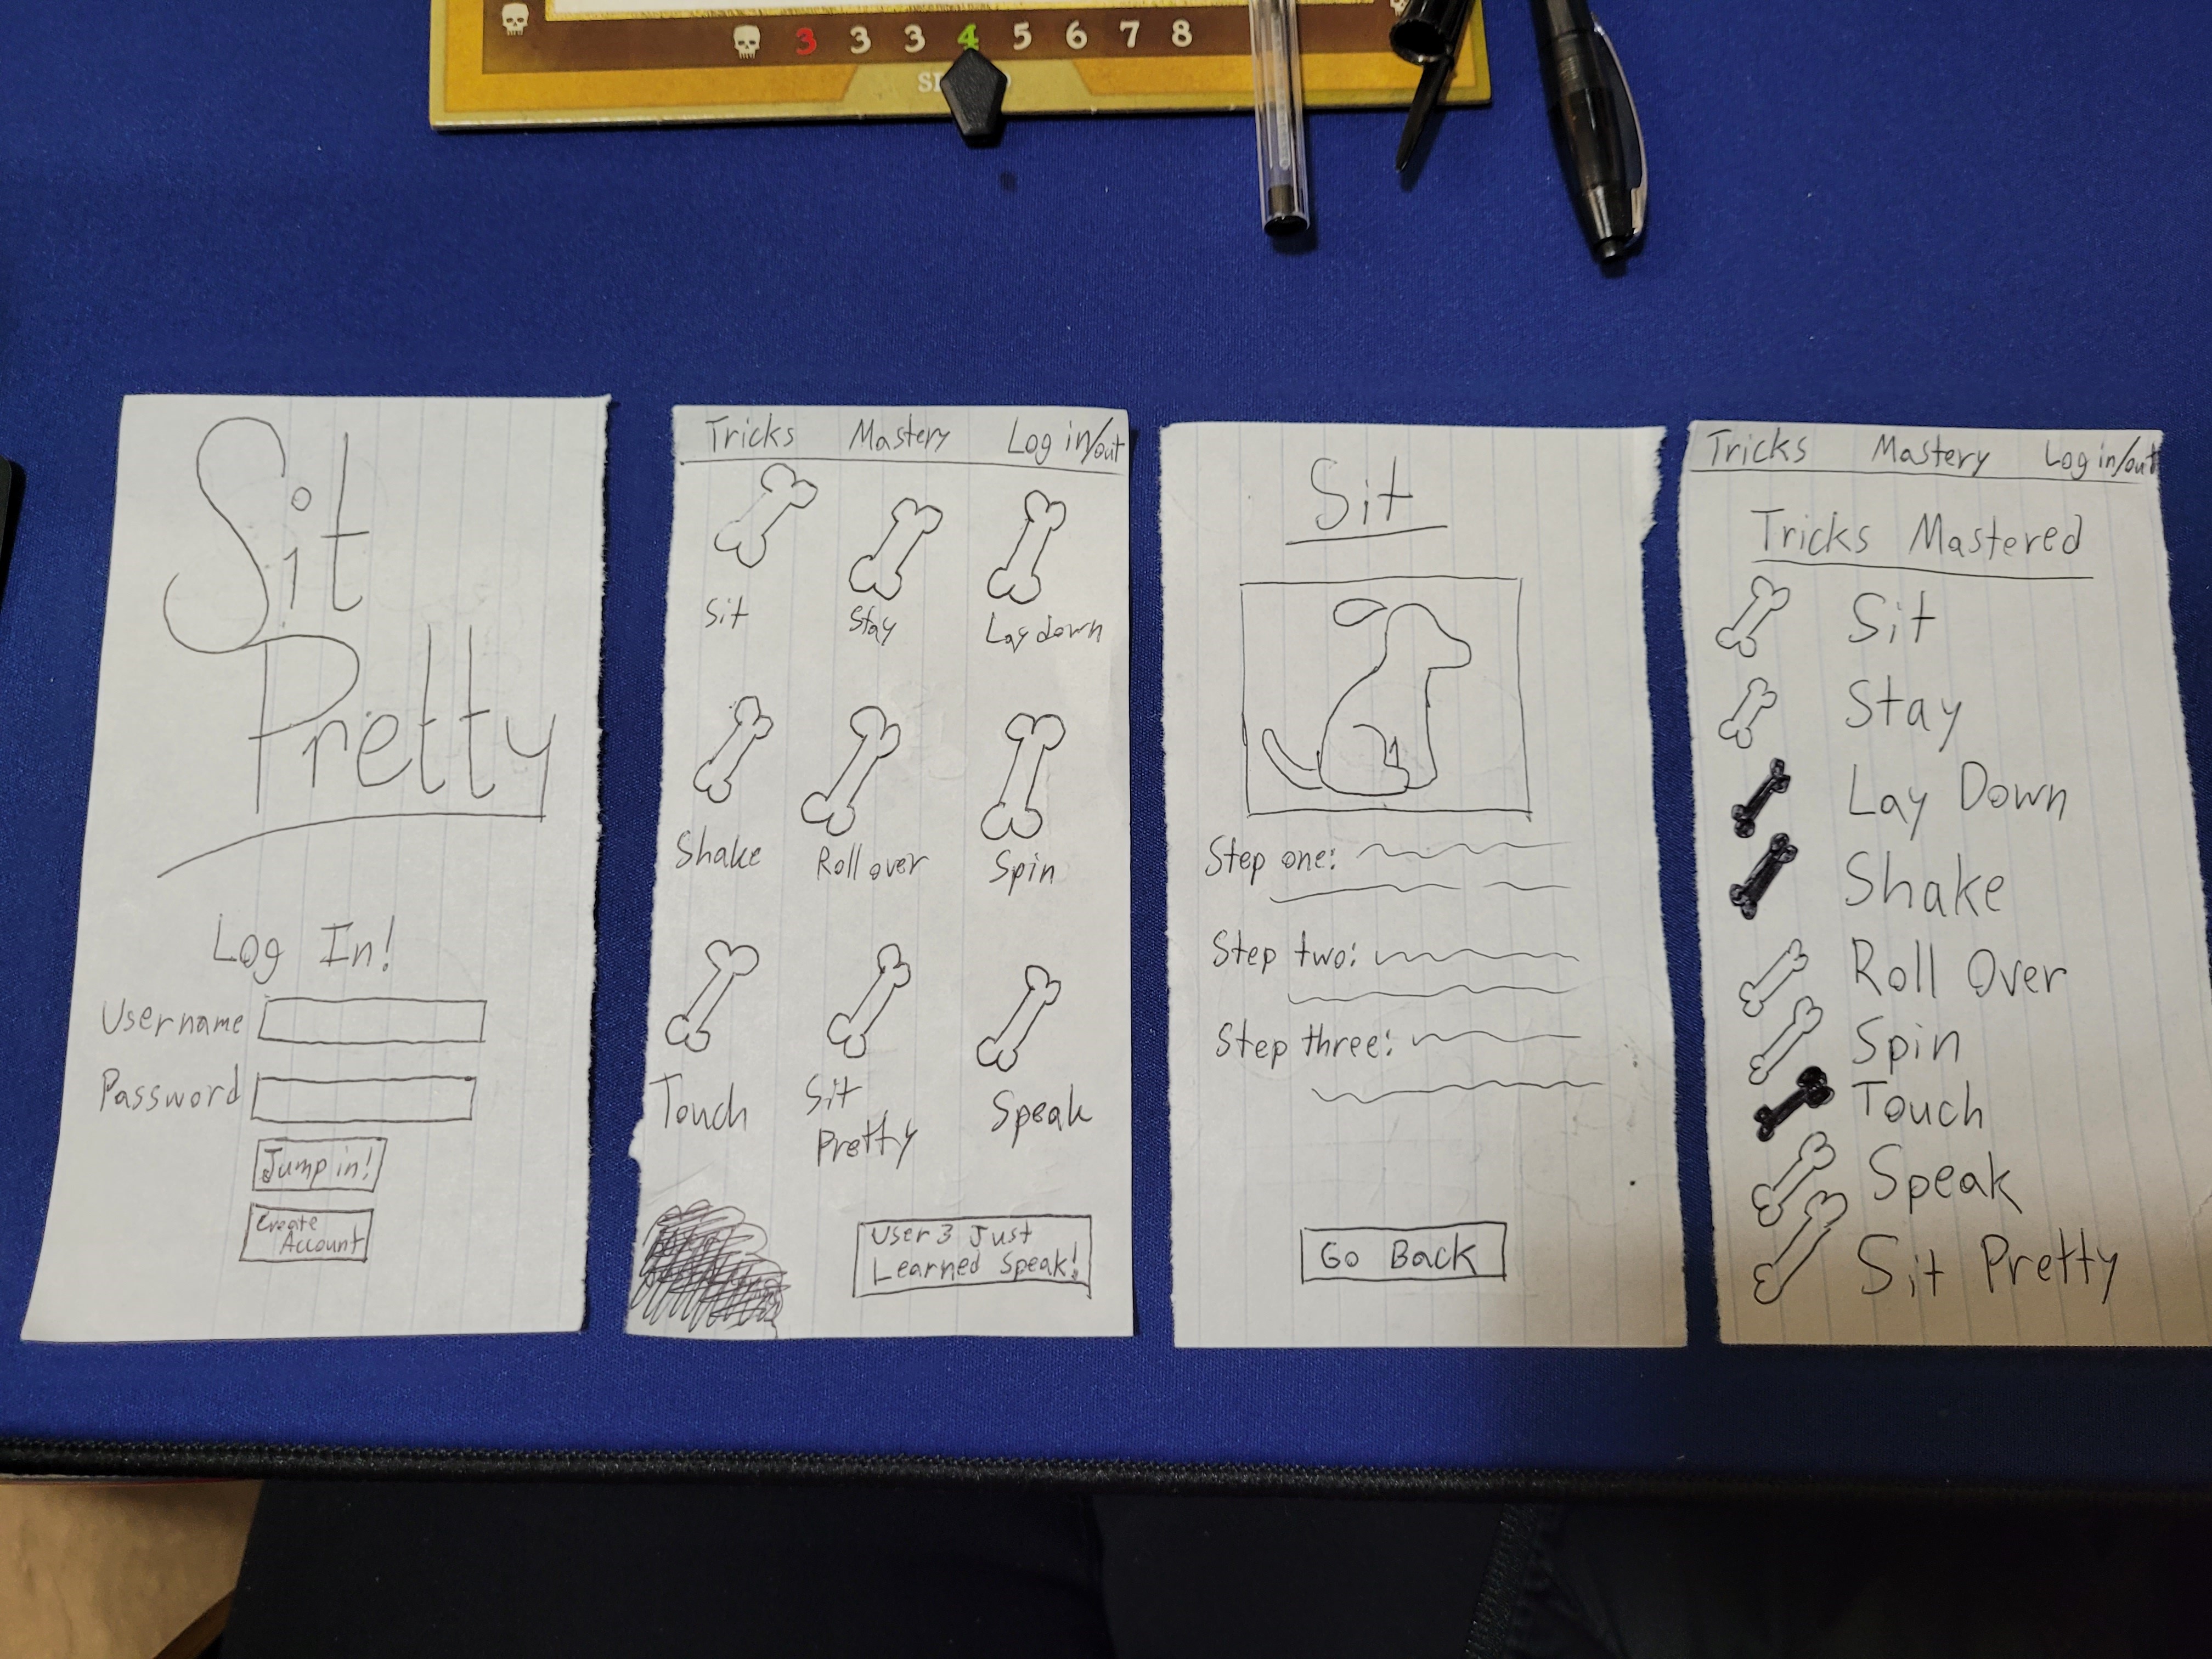 3 3 3 4 5 6 7 8
Sit
Pretty
Log In!
Username
Password
Jump in!
Create
Account
Tricks Mastery Log in/out
Sit Stay Lay down
Shake Roll over Spin
Touch Sit Pretty Speak
User 3 Just
Learned Speak!
Sit
Step one:
Step two:
Step three:
Go Back
Tricks Mastery Log in/out
Tricks Mastered
Sit
Stay
Lay Down
Shake
Roll Over
Spin
Touch
Speak
Sit Pretty